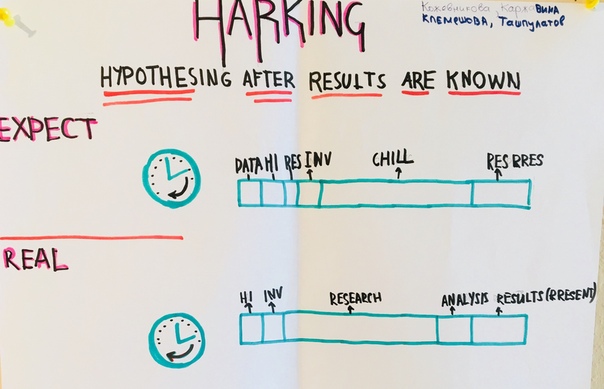 HARKING
Кожевникова Каржавина
Клемешова, Ташпулатов
HYPOTHESING AFTER RESULTS ARE KNOWN
EXPECT
DATA HI RES INV CHILL RES PRES
REAL
HI INV RESEARCH ANALYSIS RESULTS (PRESENT)